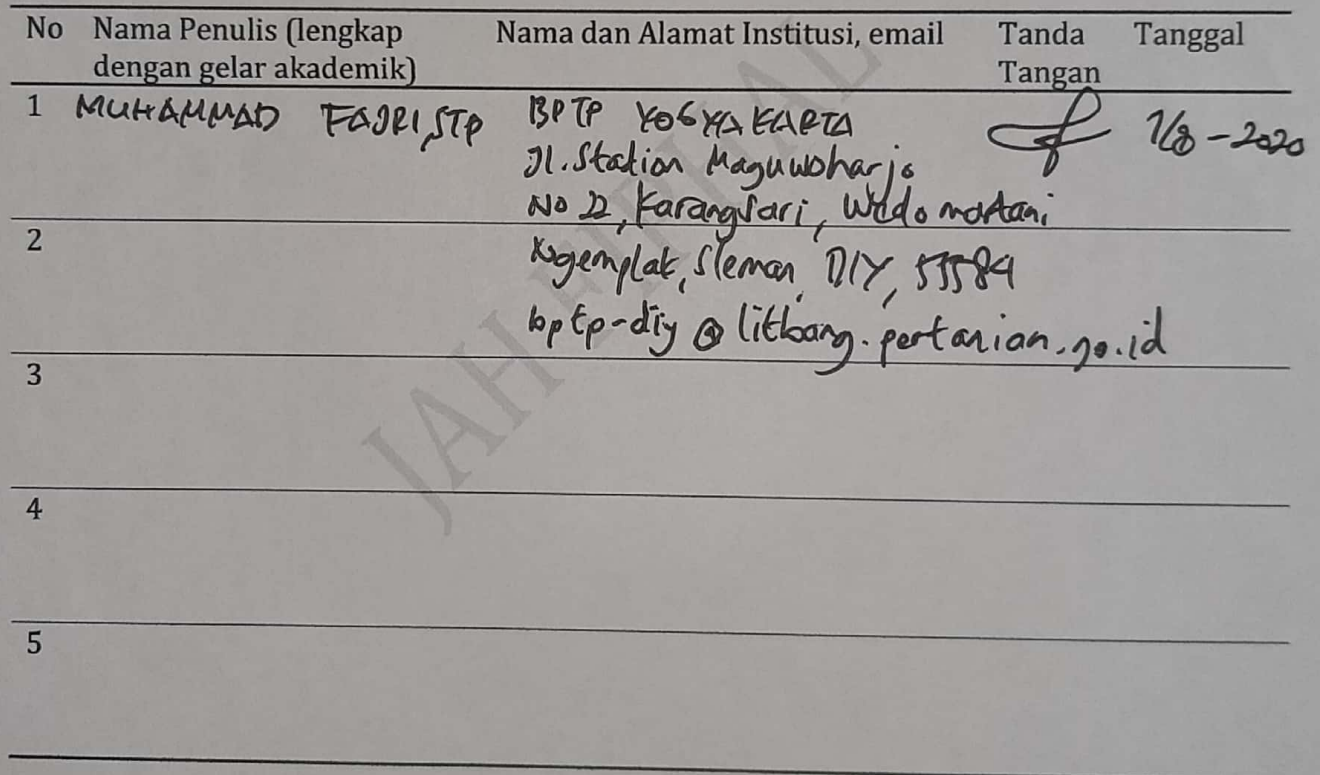 No Nama Penulis (lengkap dengan gelar akademik) Nama dan Alamat Institusi, email Tanda Tangan Tanggal
1 MUHAMMAD FAJRI, STP BPTP YOGYAKARTA 7/8-2020
Jl. Stadion Maguwoharjo
No 22, Karangsari, Wedomartani
2 Ngemplak, Sleman, DIY, 55584
bptp-diy@litbang.pertanian.go.id
3
4
5